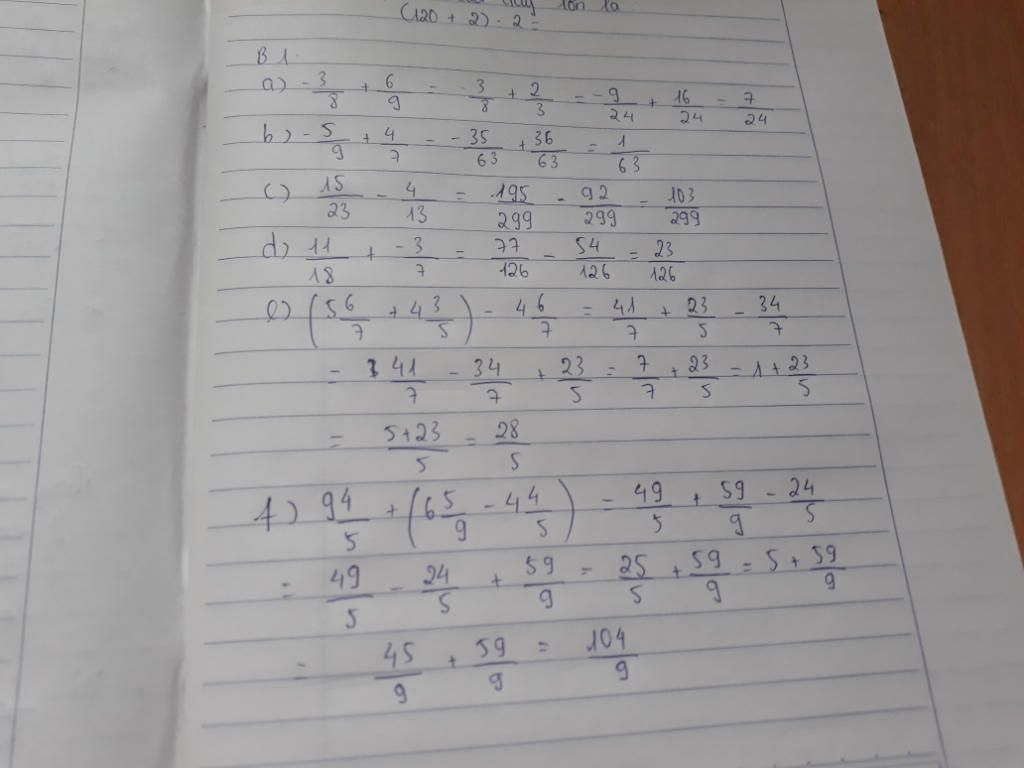 lớn là
(120 + 2) . 2 =
B1.
a) -3/8 + 6/9 = -3/8 + 2/3 = -9/24 + 16/24 = 7/24
b) -5/9 + 4/7 = -35/63 + 36/63 = 1/63
c) 15/23 - 4/13 = 195/299 - 92/299 = 103/299
d) 11/18 + -3/7 = 77/126 - 54/126 = 23/126
e) (5 6/7 + 4 3/5) - 4 6/7 = 41/7 + 23/5 - 34/7
= 41/7 - 34/7 + 23/5 = 7/7 + 23/5 = 1 + 23/5
= 5+23/5 = 28/5
f) 9 4/5 + (6 5/9 - 4 4/5) = 49/5 + 59/9 - 24/5
= 49/5 - 24/5 + 59/9 = 25/5 + 59/9 = 5 + 59/9
= 45/9 + 59/9 = 104/9